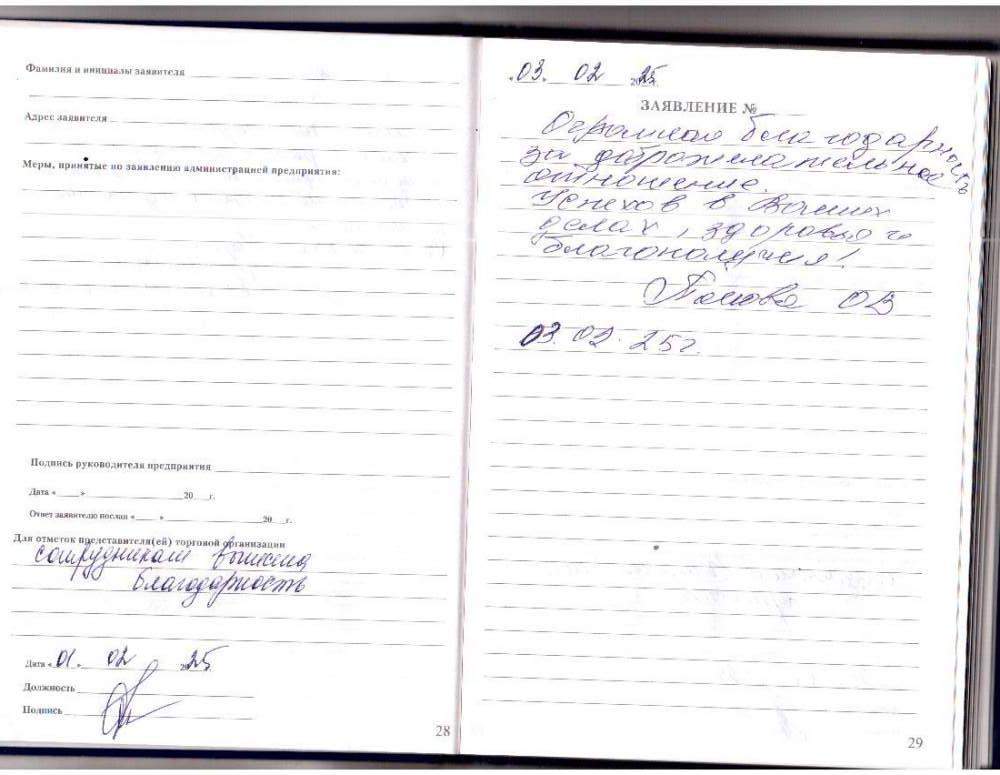 Фамилия и инициалы заявителя
Адрес заявителя
Меры, принятые по заявлению администрацией предприятия:
Подпись руководителя предприятия
Дата « » 20 г.
Ответ заявителю послан « » 20 г.
Для отметок представителя(ей) торговой организации
сотрудникам вынесена
благодарность
Дата «01» 02 2025
Должность
Подпись
28
«03» 02 2025г.
ЗАЯВЛЕНИЕ №
Огромная благодарность
за доброжелательное
отношение.
Успехов в Ваших
делах, здоровья и
благополучия!
Попова ОВ
03.02.25г.
29